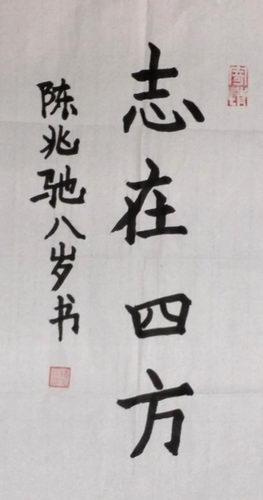 志在四方
陈兆驰八岁书